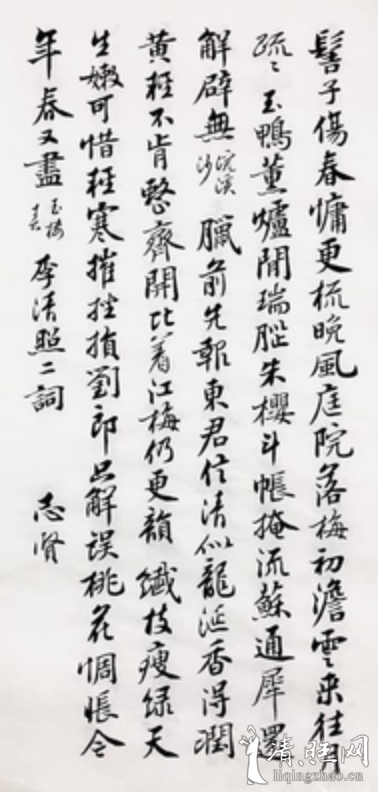 髻子傷春慵更梳晚風庭院落梅初澹雲来往月
疏〻玉鴨薰爐閒瑞脳朱櫻斗帳掩流蘇通犀還
解辟無浣溪沙 臘前先報東君信清似龍涎香得潤
黄輕不肯整齊開比着江梅仍更韻 纖枝瘦緑天
生嫩可惜輕寒摧挫損劉郎只解誤桃花惆悵今
年春又盡玉楼春 李清照二詞 志贤
清照网
liqingzhao.cn